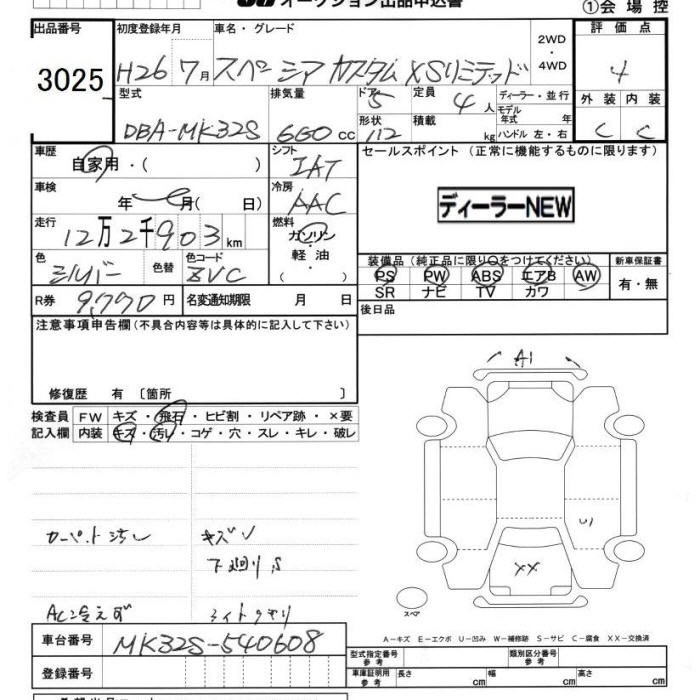 オークション出品申込書
①会場控
出品番号 初度登録年月 車名・グレード 2WD・4WD 評価点
3025 H26 7月 スペーシア カスタム XSリミテッド 4
型式 排気量 ドア 定員 ディーラー・並行 外装 内装
DBA-MK32S 660cc 5 4人 モデル年式 年 C C
形状 112 積載 kg ハンドル 左・右
車歴 自家用・( ) シフト IAT セールスポイント (正常に機能するものに限ります)
車検 年 月( 日) 冷房 AAC
ディーラーNEW
走行 12万2千903km 燃料 ガソリン・軽油・( )
色 シルバー 色替 色コード ZVC
装備品 (純正品に限り○をつけてください) 新車保証書
PS PW ABS エアB AW 有・無
SR ナビ TV カワ
R券 9,770円 名変通知期限 月 日
後日品
注意事項申告欄 (不具合内容等は具体的に記入して下さい)
修復歴 有 [箇所 ]
検査員記入欄
FW キズ・飛石・ヒビ割・リペア跡・×要
内装 キズ・汚れ・コゲ・穴・スレ・キレ・破レ
A1
U1
XX
カーペット汚レ キズソ
下廻りS
AC冷えず ライトクモリ
スペア
A−キズ E−エクボ U−凹み W−補修跡 S−サビ C−腐食 XX−交換済
車台番号 MK32S-540608
登録番号
型式指定番号 参考 類別区分番号 参考
車庫証明用 参考 長さ cm 幅 cm 高さ cm